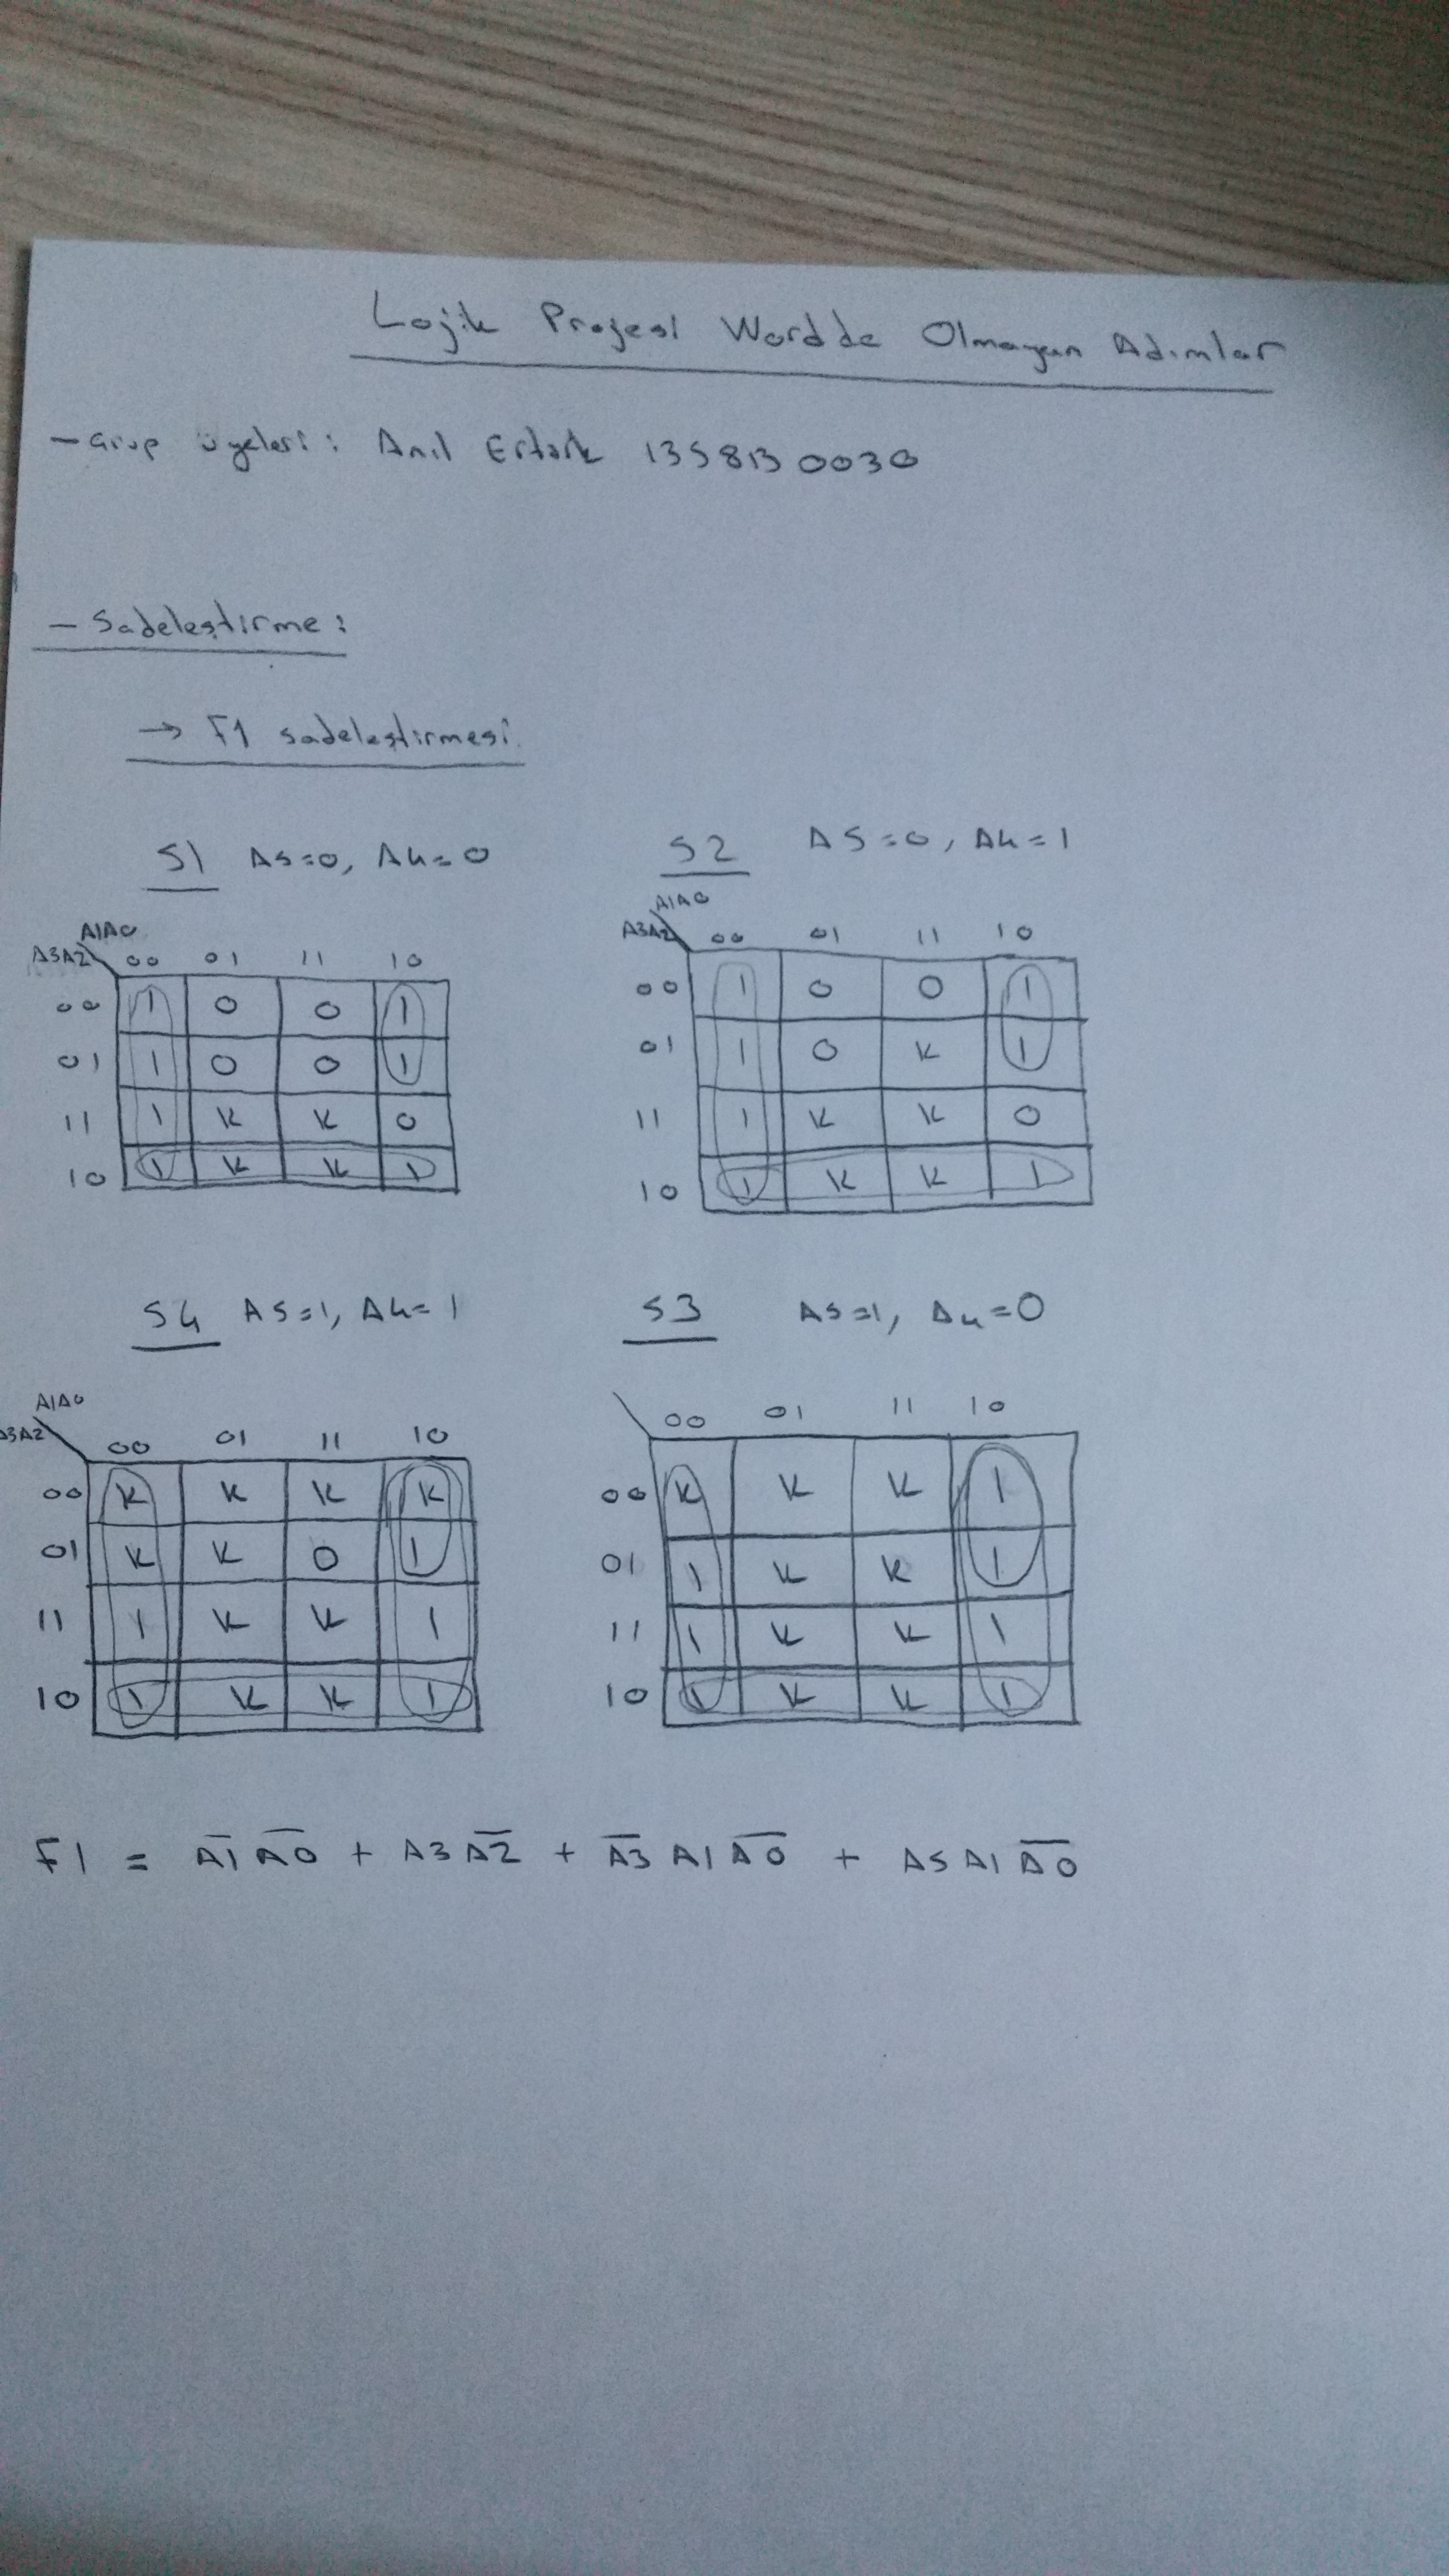 Lojik Projesi Wordde Olmayan Adımlar
- Grup üyeleri: Anıl Ertürk 1358130030
- Sadeleştirme:
→ F1 sadeleştirmesi
S1 A5=0, A4=0
A1A0
A3A2 00 01 11 10
00 1 0 0 1
01 1 0 0 1
11 1 K K 0
10 1 K K 1
S2 A5=0, A4=1
A1A0
A3A2 00 01 11 10
00 1 0 0 1
01 1 0 K 1
11 1 K K 0
10 1 K K 1
S4 A5=1, A4=1
A1A0
A3A2 00 01 11 10
00 K K K K
01 K K 0 1
11 1 K K 1
10 1 K K 1
S3 A5=1, A4=0
00 01 11 10
00 K K K 1
01 1 K K 1
11 1 K K 1
10 1 K K 1
F1 = A̅1̅ A̅0̅ + A3 A̅2̅ + A̅3̅ A1 A̅0̅ + A5 A1 A̅0̅